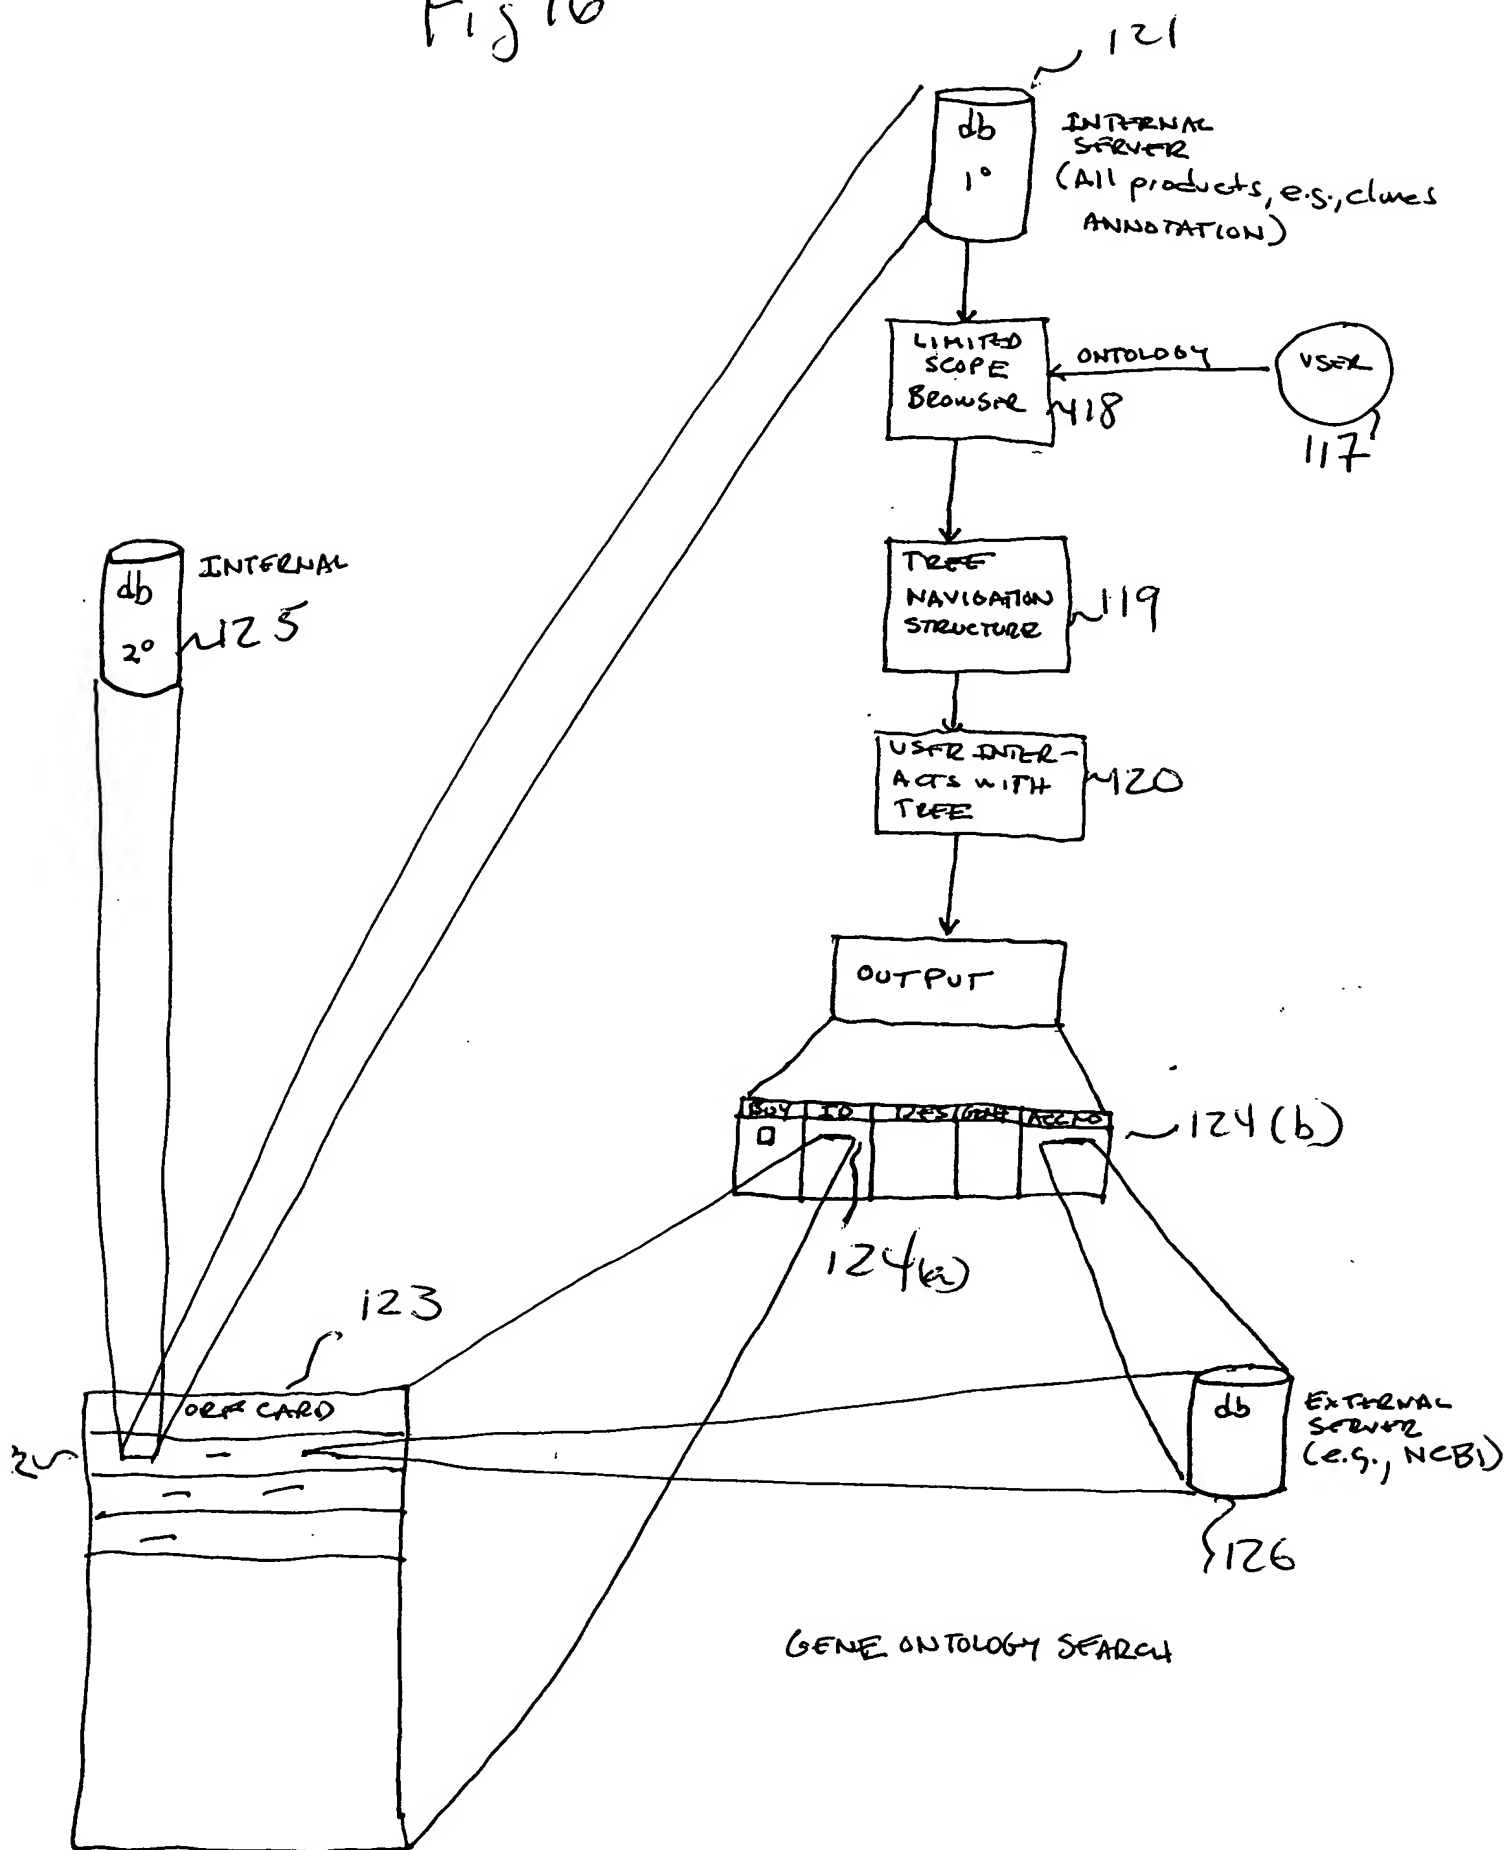 Fig 16
121
db
1°
INTERNAL
SERVER
(All products, e.g., clones
ANNOTATION)
LIMITED
SCOPE
BROWSER
118
ONTOLOGY
USER
117
TREE
NAVIGATION
STRUCTURE
119
db
2°
INTERNAL
125
USER INTER-
ACTS WITH
TREE
120
OUTPUT
BUY ID DES GENE ACC NO
124(b)
124(a)
123
ORF CARD
db
EXTERNAL
SERVER
(e.g., NCBI)
126
GENE ONTOLOGY SEARCH